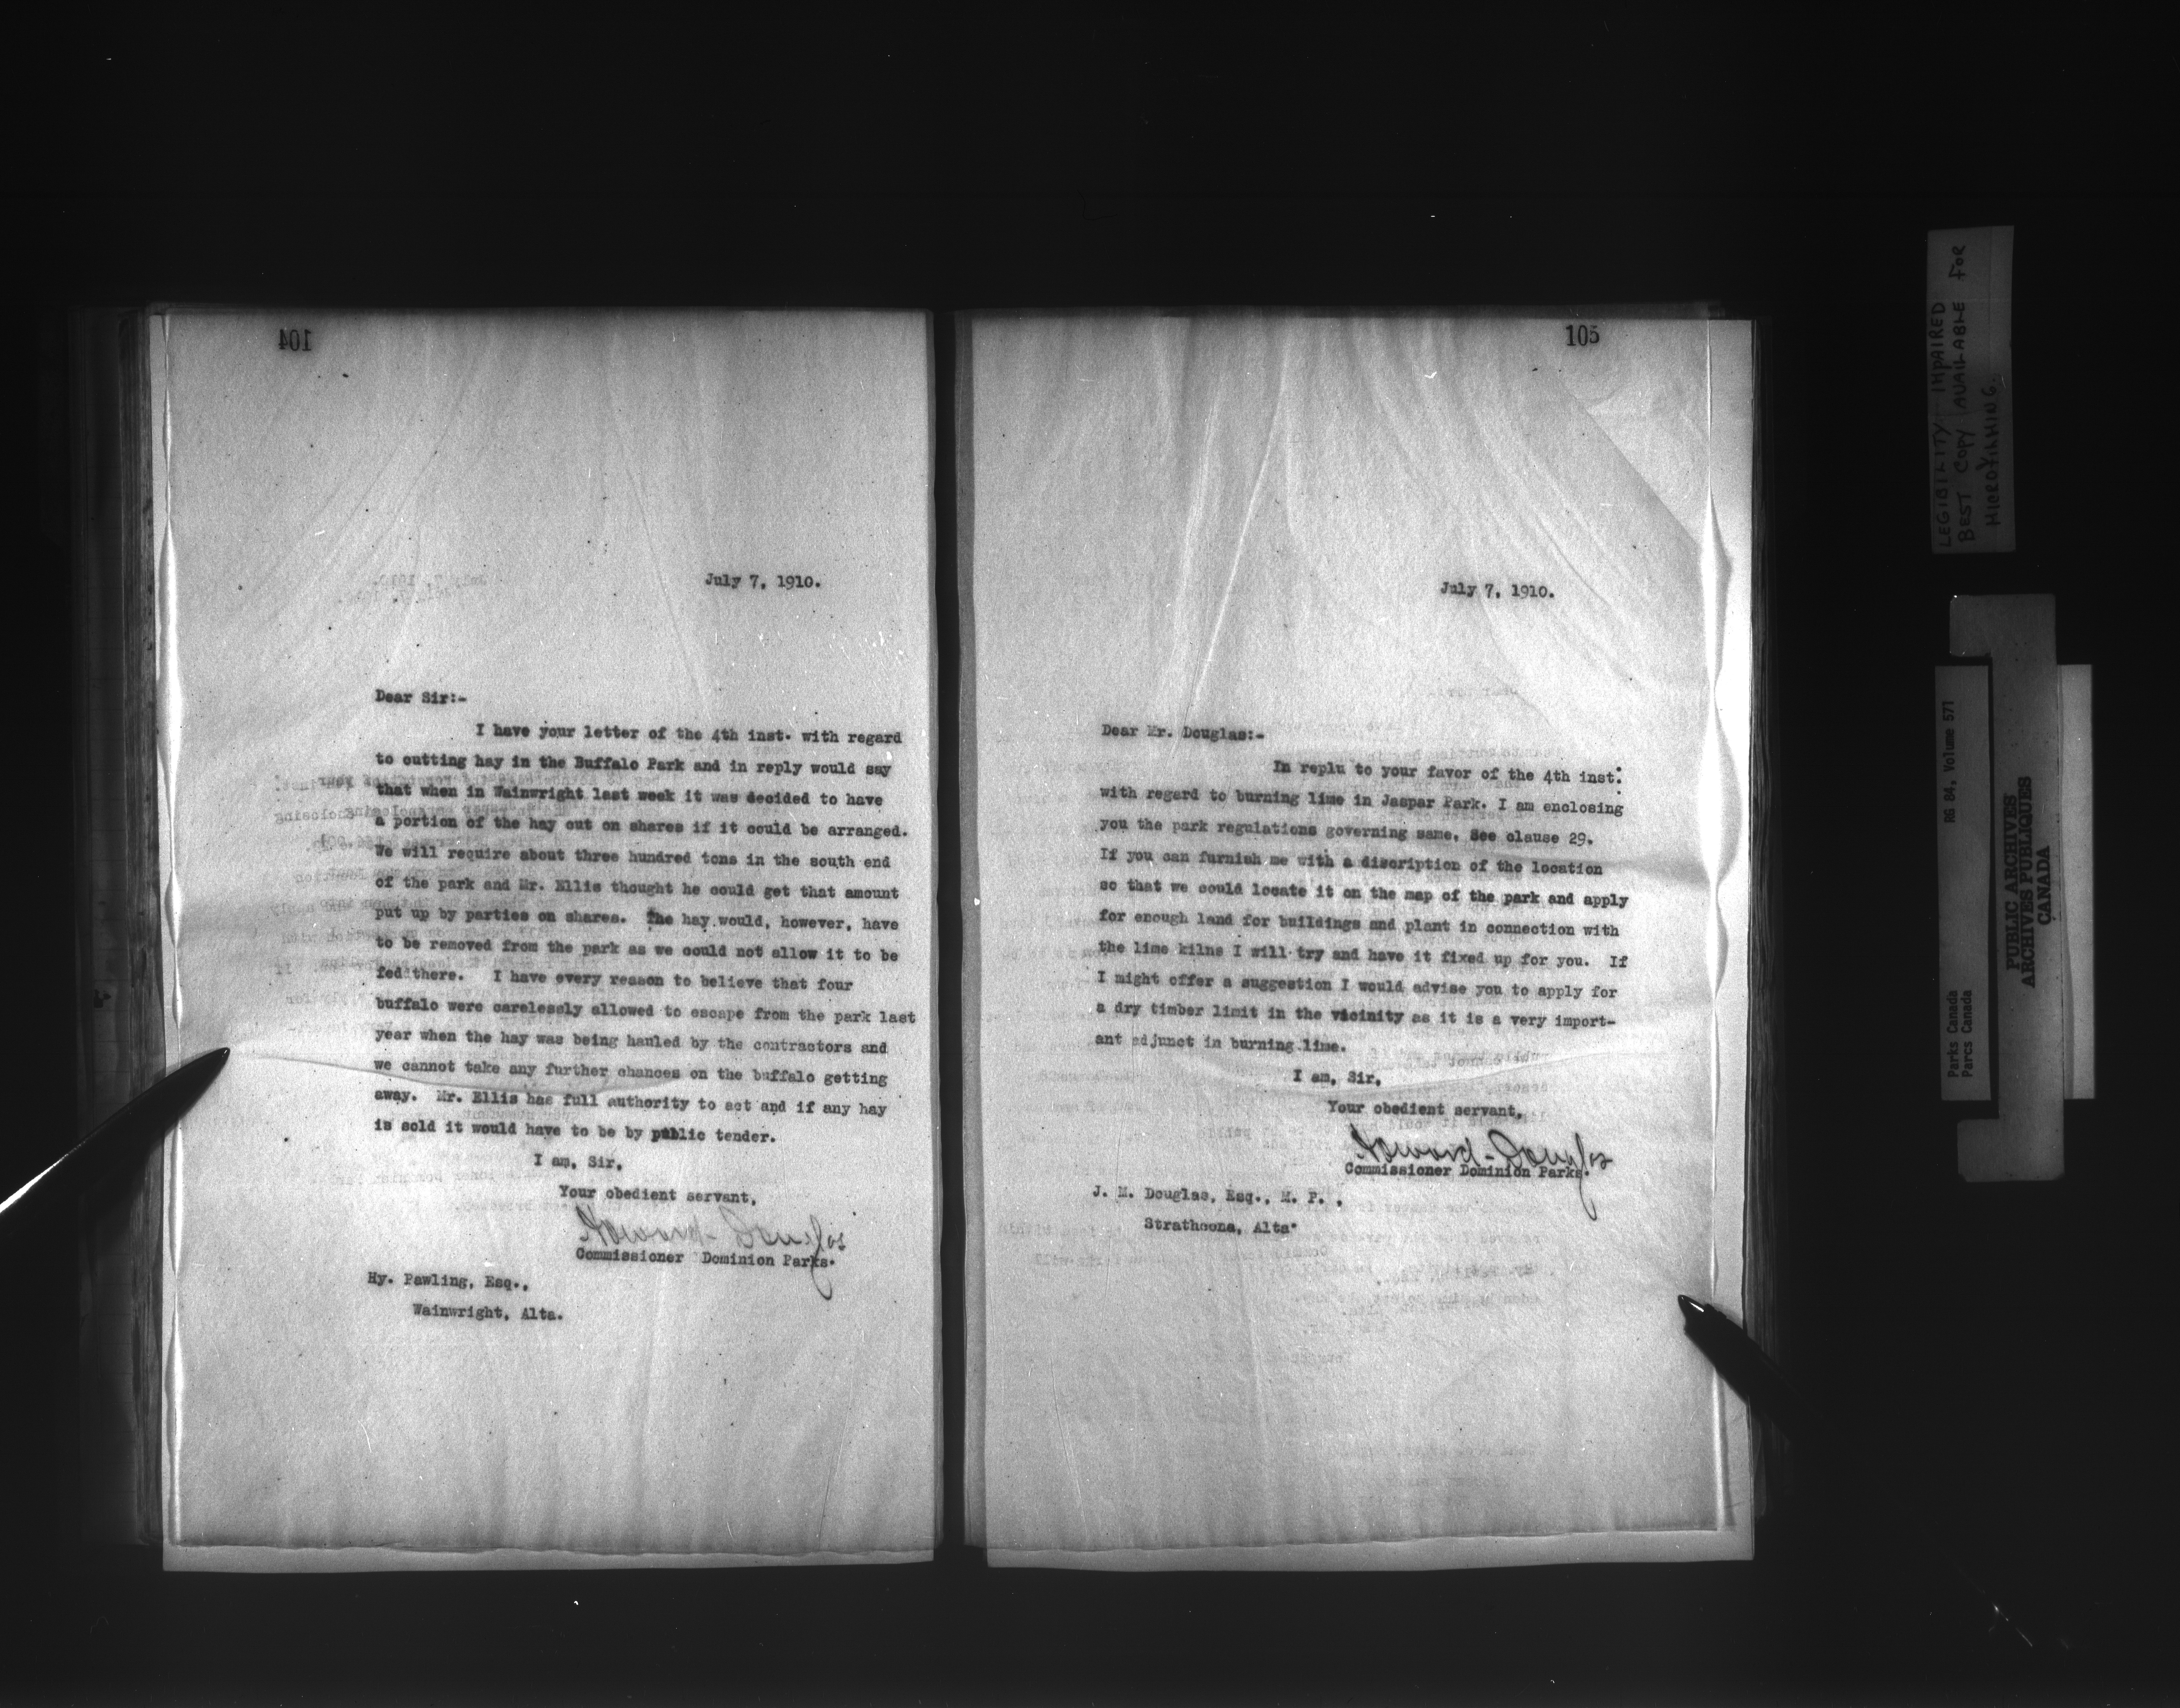 104
July 7, 1910.
Dear Sir:-
I have your letter of the 4th inst. with regard
to cutting hay in the Buffalo Park and in reply would say
that when in Wainwright last week it was decided to have
a portion of the hay cut on shares if it could be arranged.
We will require about three hundred tons in the south end
of the park and Mr. Ellis thought he could get that amount
put up by parties on shares. The hay would, however, have
to be removed from the park as we could not allow it to be
fed there. I have every reason to believe that four
buffalo were carelessly allowed to escape from the park last
year when the hay was being hauled by the contractors and
we cannot take any further chances on the buffalo getting
away. Mr. Ellis has full authority to act and if any hay
is sold it would have to be by public tender.
I am, Sir,
Your obedient servant,
Howard Douglas
Commissioner Dominion Parks.
Hy. Pawling, Esq.,
Wainwright, Alta.
105
July 7, 1910.
Dear Mr. Douglas:-
In replu to your favor of the 4th inst.
with regard to burning lime in Jaspar Park. I am enclosing
you the park regulations governing same. See clause 29.
If you can furnish me with a discription of the location
so that we could locate it on the map of the park and apply
for enough land for buildings and plant in connection with
the lime kilns I will try and have it fixed up for you. If
I might offer a suggestion I would advise you to apply for
a dry timber limit in the vicinity as it is a very import-
ant adjunct in burning lime.
I am, Sir,
Your obedient servant,
Howard Douglas
Commissioner Dominion Parks.
J. M. Douglas, Esq., M. P.,
Strathcona, Alta.
LEGIBILITY IMPAIRED
BEST COPY AVAILABLE FOR
MICROFILMING.
Parks Canada RG 84, Volume 571
Parcs Canada
PUBLIC ARCHIVES
ARCHIVES PUBLIQUES
CANADA